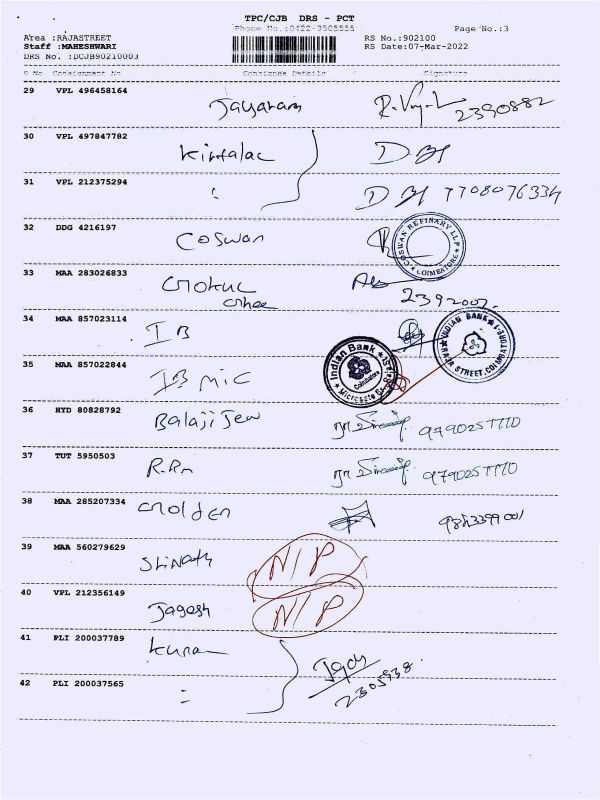 TPC/CJB DRS - PCT
Phone No.:0422-3505555 Page No.:3
Area :RAJASTREET RS No.:902100
Staff :MAHESHWARI RS Date:07-Mar-2022
DRS No. :DCJB90210003
S No Consignment No Consignee Details Signature
29 VPL 496458164 Jayaram 2390882
30 VPL 497847782 Kirtalac
31 VPL 212375294 : 7708076334
32 DDG 4216197 Coswan
COSWAN REFINARY LLP COIMBATORE
33 MAA 283026833 Gokul
34 MAA 857023114 IB
INDIAN BANK RAJA STREET, COIMBATORE-1
35 MAA 857022844 IB MIC
Indian Bank Coimbatore
36 HYD 80828792 Balaji Jew
37 TUT 5950503 R.Rm
38 MAA 285207334 Golden
39 MAA 560279629 Srinath N/P
40 VPL 212356149 Jagesh N/P
41 PLI 200037789
42 PLI 200037565 : 2305938